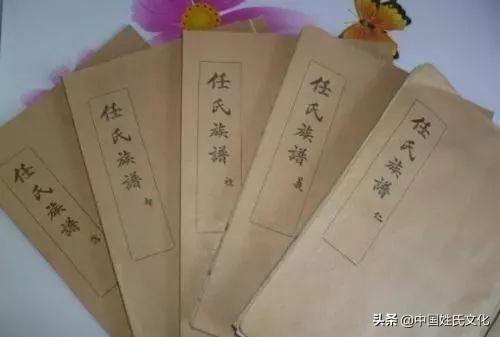 任氏族谱
任氏族谱
任氏族谱 礼
任氏族谱 義
任氏族谱 仁
头条 @中国姓氏文化